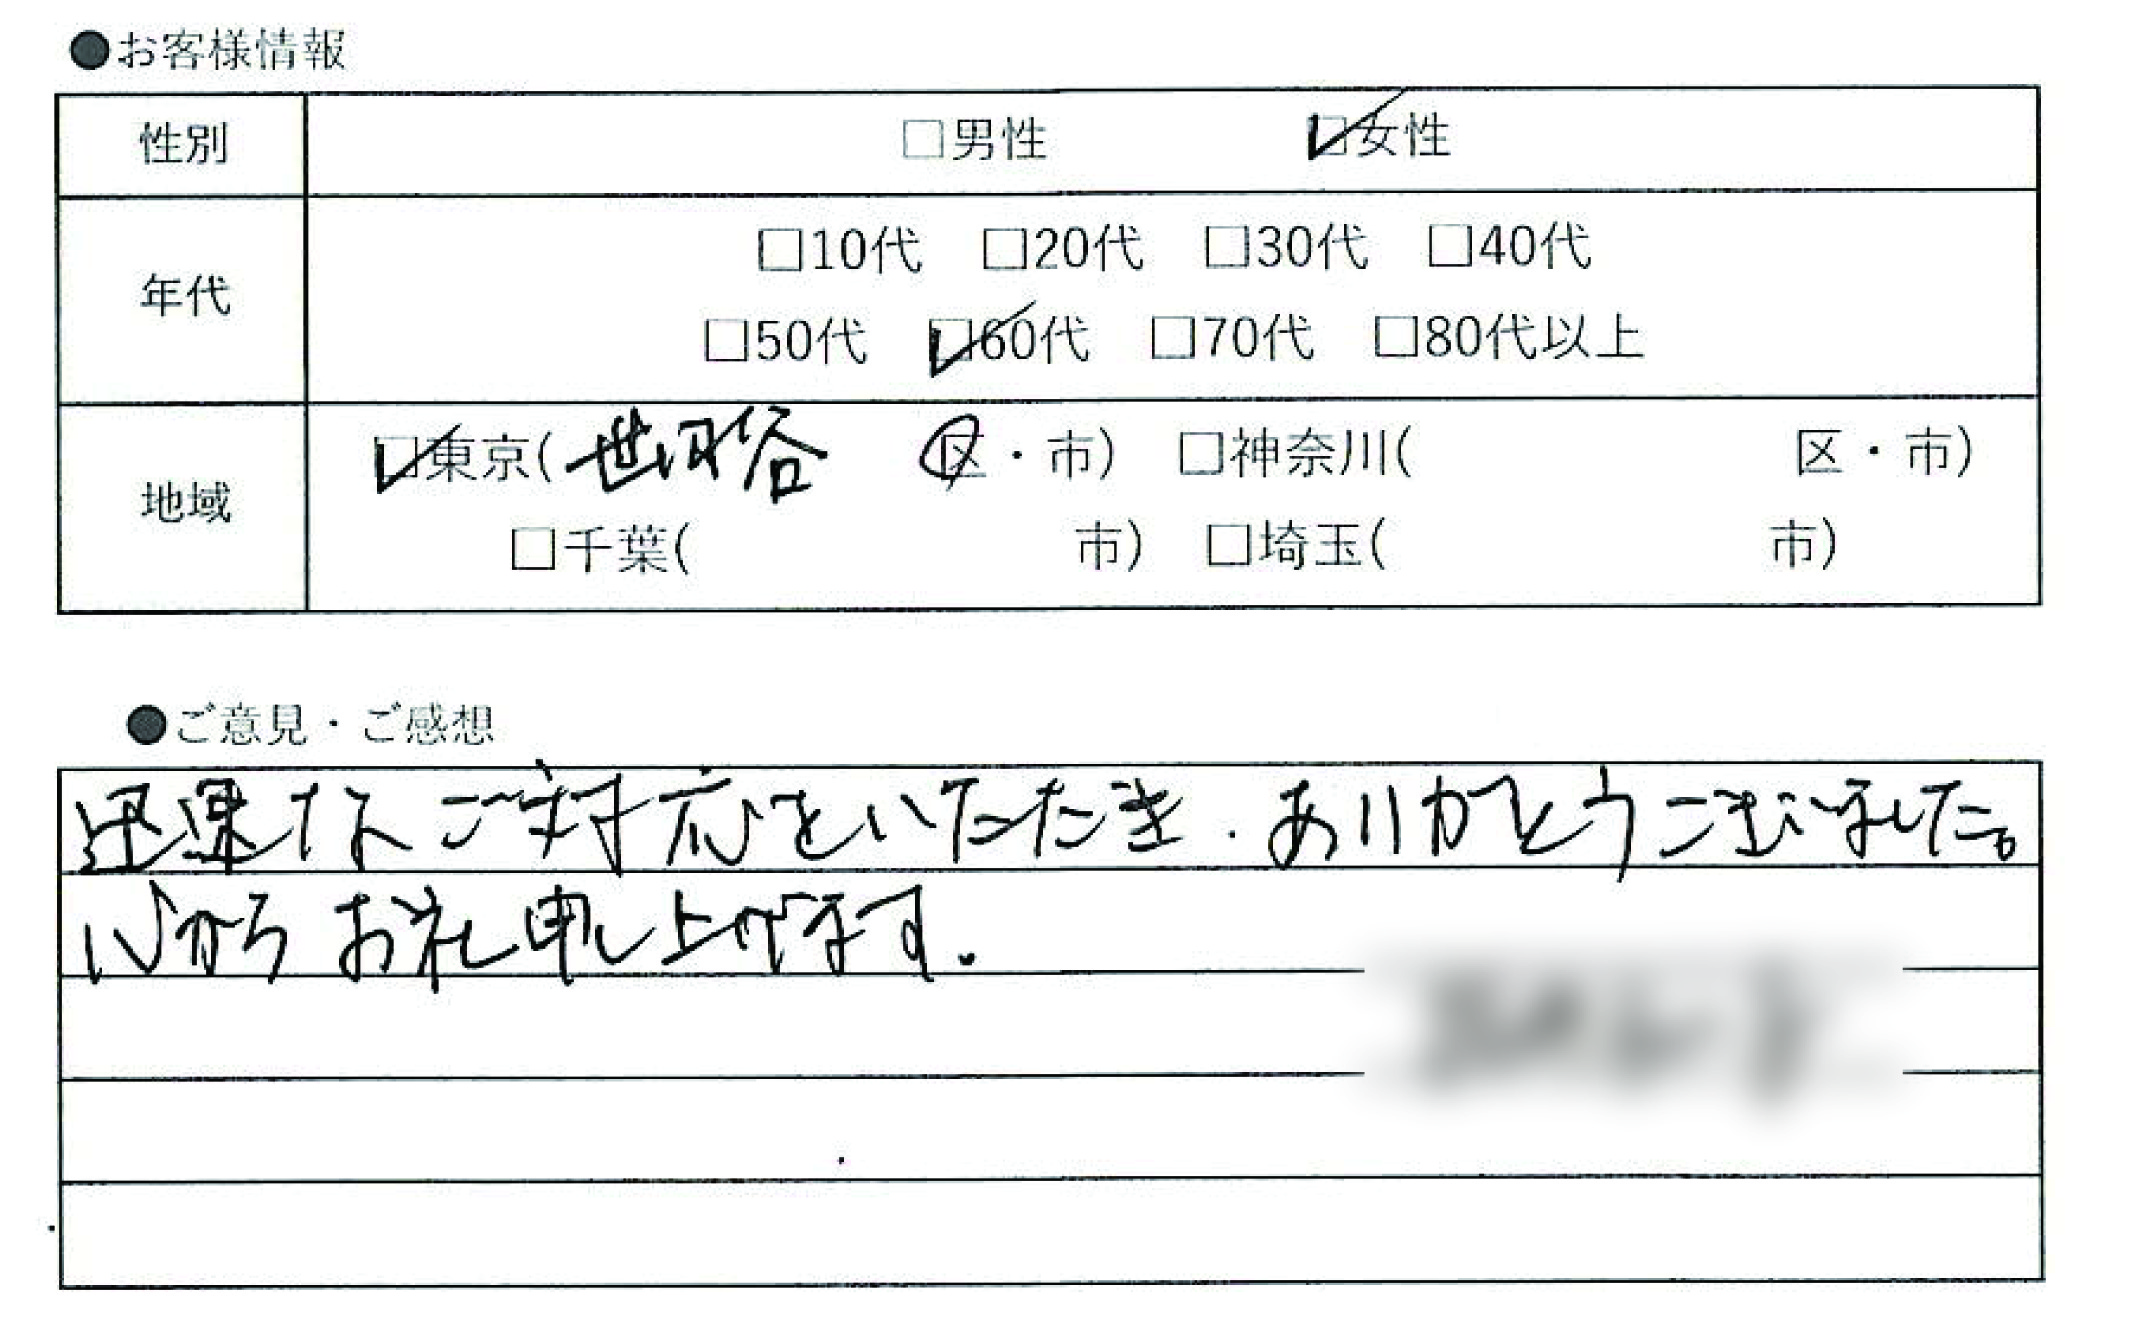 ●お客様情報
性別 □男性 ☑女性
年代 □10代 □20代 □30代 □40代
□50代 ☑60代 □70代 □80代以上
地域 ☑東京(世田谷 区・市) □神奈川( 区・市)
□千葉( 市) □埼玉( 市)
●ご意見・ご感想
迅速なご対応をいただき、ありがとうございました。
心からお礼申し上げます.